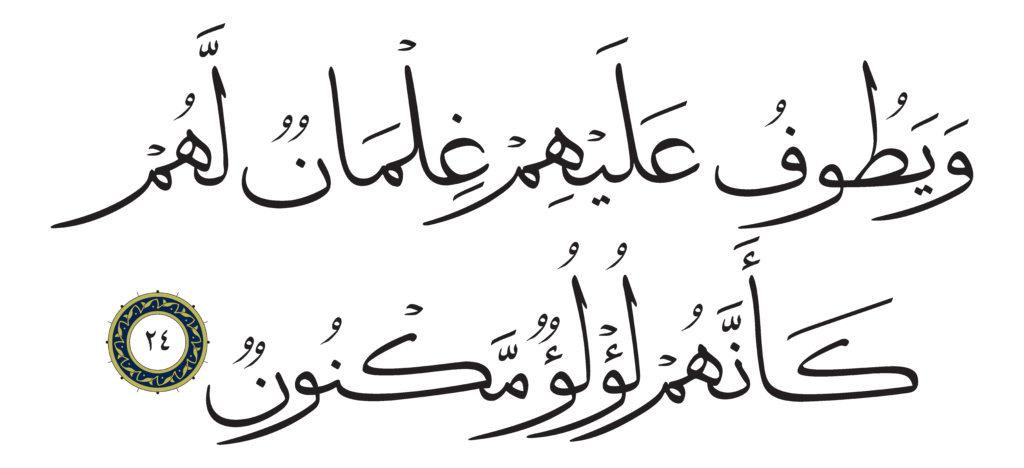 وَيَطُوفُ عَلَيْهِمْ غِلْمَانٌ لَّهُمْ
كَأَنَّهُمْ لُؤْلُؤٌ مَّكْنُونٌ ٢٤